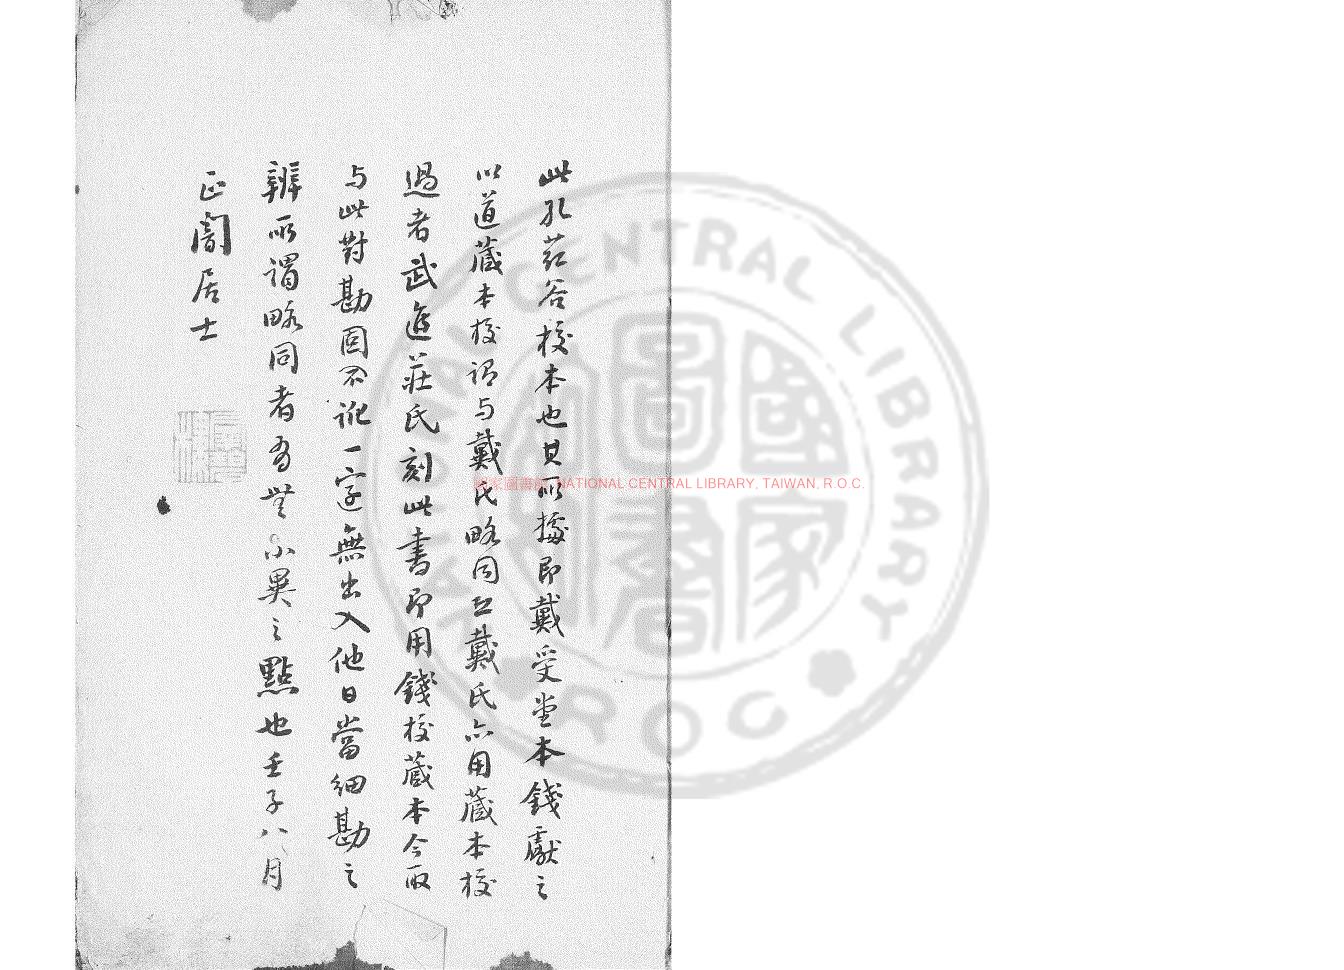 此孔葒谷校本也其所據即戴受堂本錢獻之
以道藏本校謂與戴氏略同且戴氏亦用藏本校
過者武進莊氏刻此書即用錢校藏本今取
与此對勘固不訛一字無出入他日當細勘之
辨所謂略同者為無小異之點也壬子八月
正闇居士
國家圖書館 NATIONAL CENTRAL LIBRARY, TAIWAN, R.O.C.
NATIONAL CENTRAL LIBRARY
R O C
國家圖書